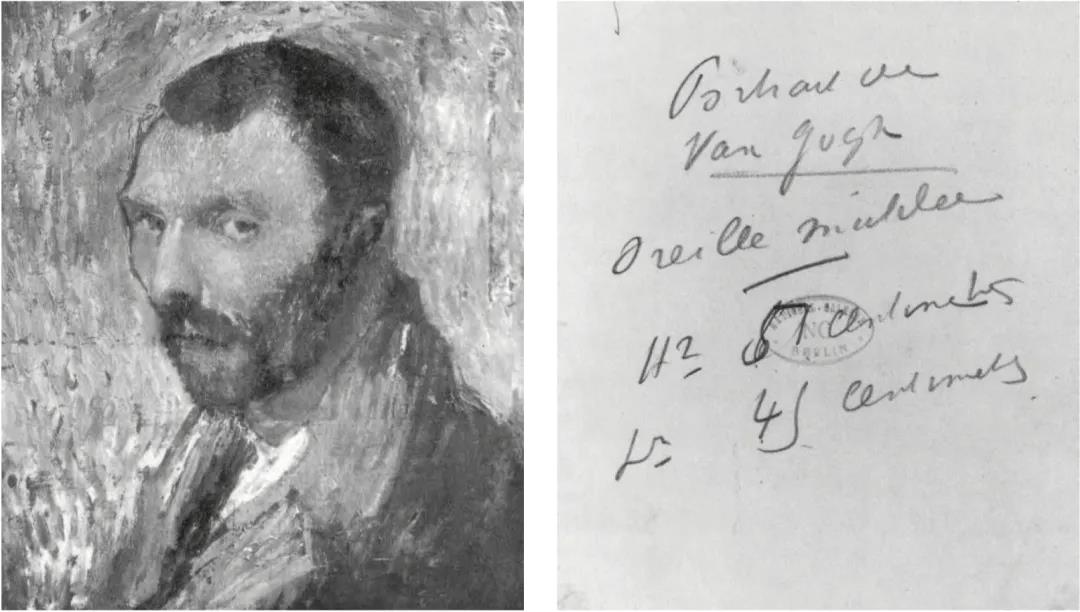 Portrait de
Van Gogh
Oreille mutilée
centimetres
45 centimetres
NG
BERLIN